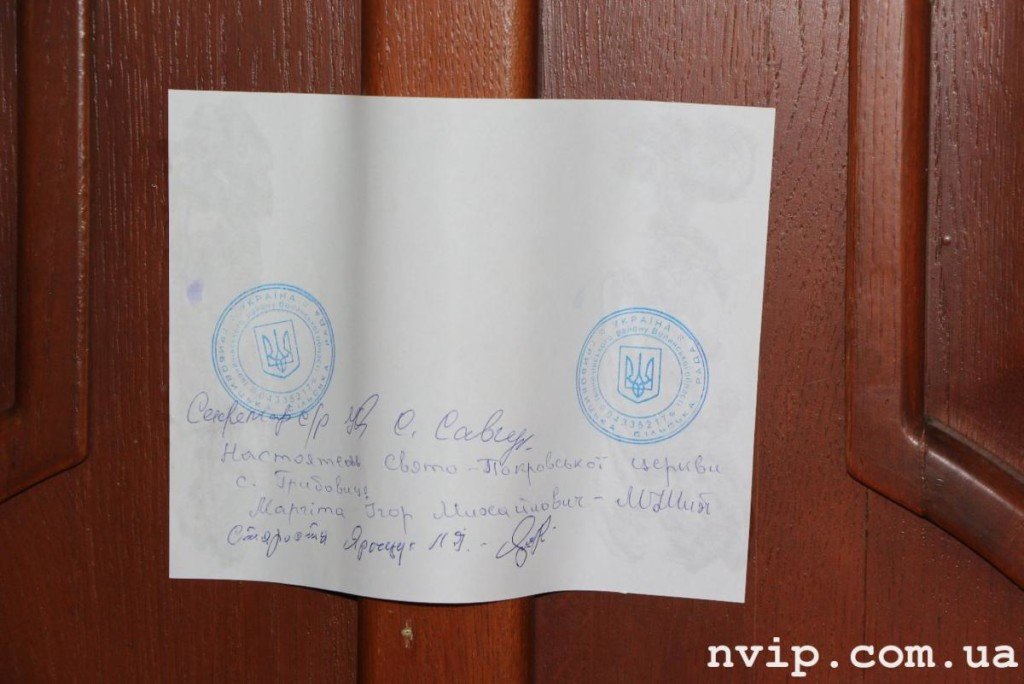 УКРАЇНА
04335217
Секретар с/р С. Савчук
Настоятель Свято-Покровської церкви
с. Грибовиця
Маргіта Ігор Михайлович -
Староста -
nvip.com.ua